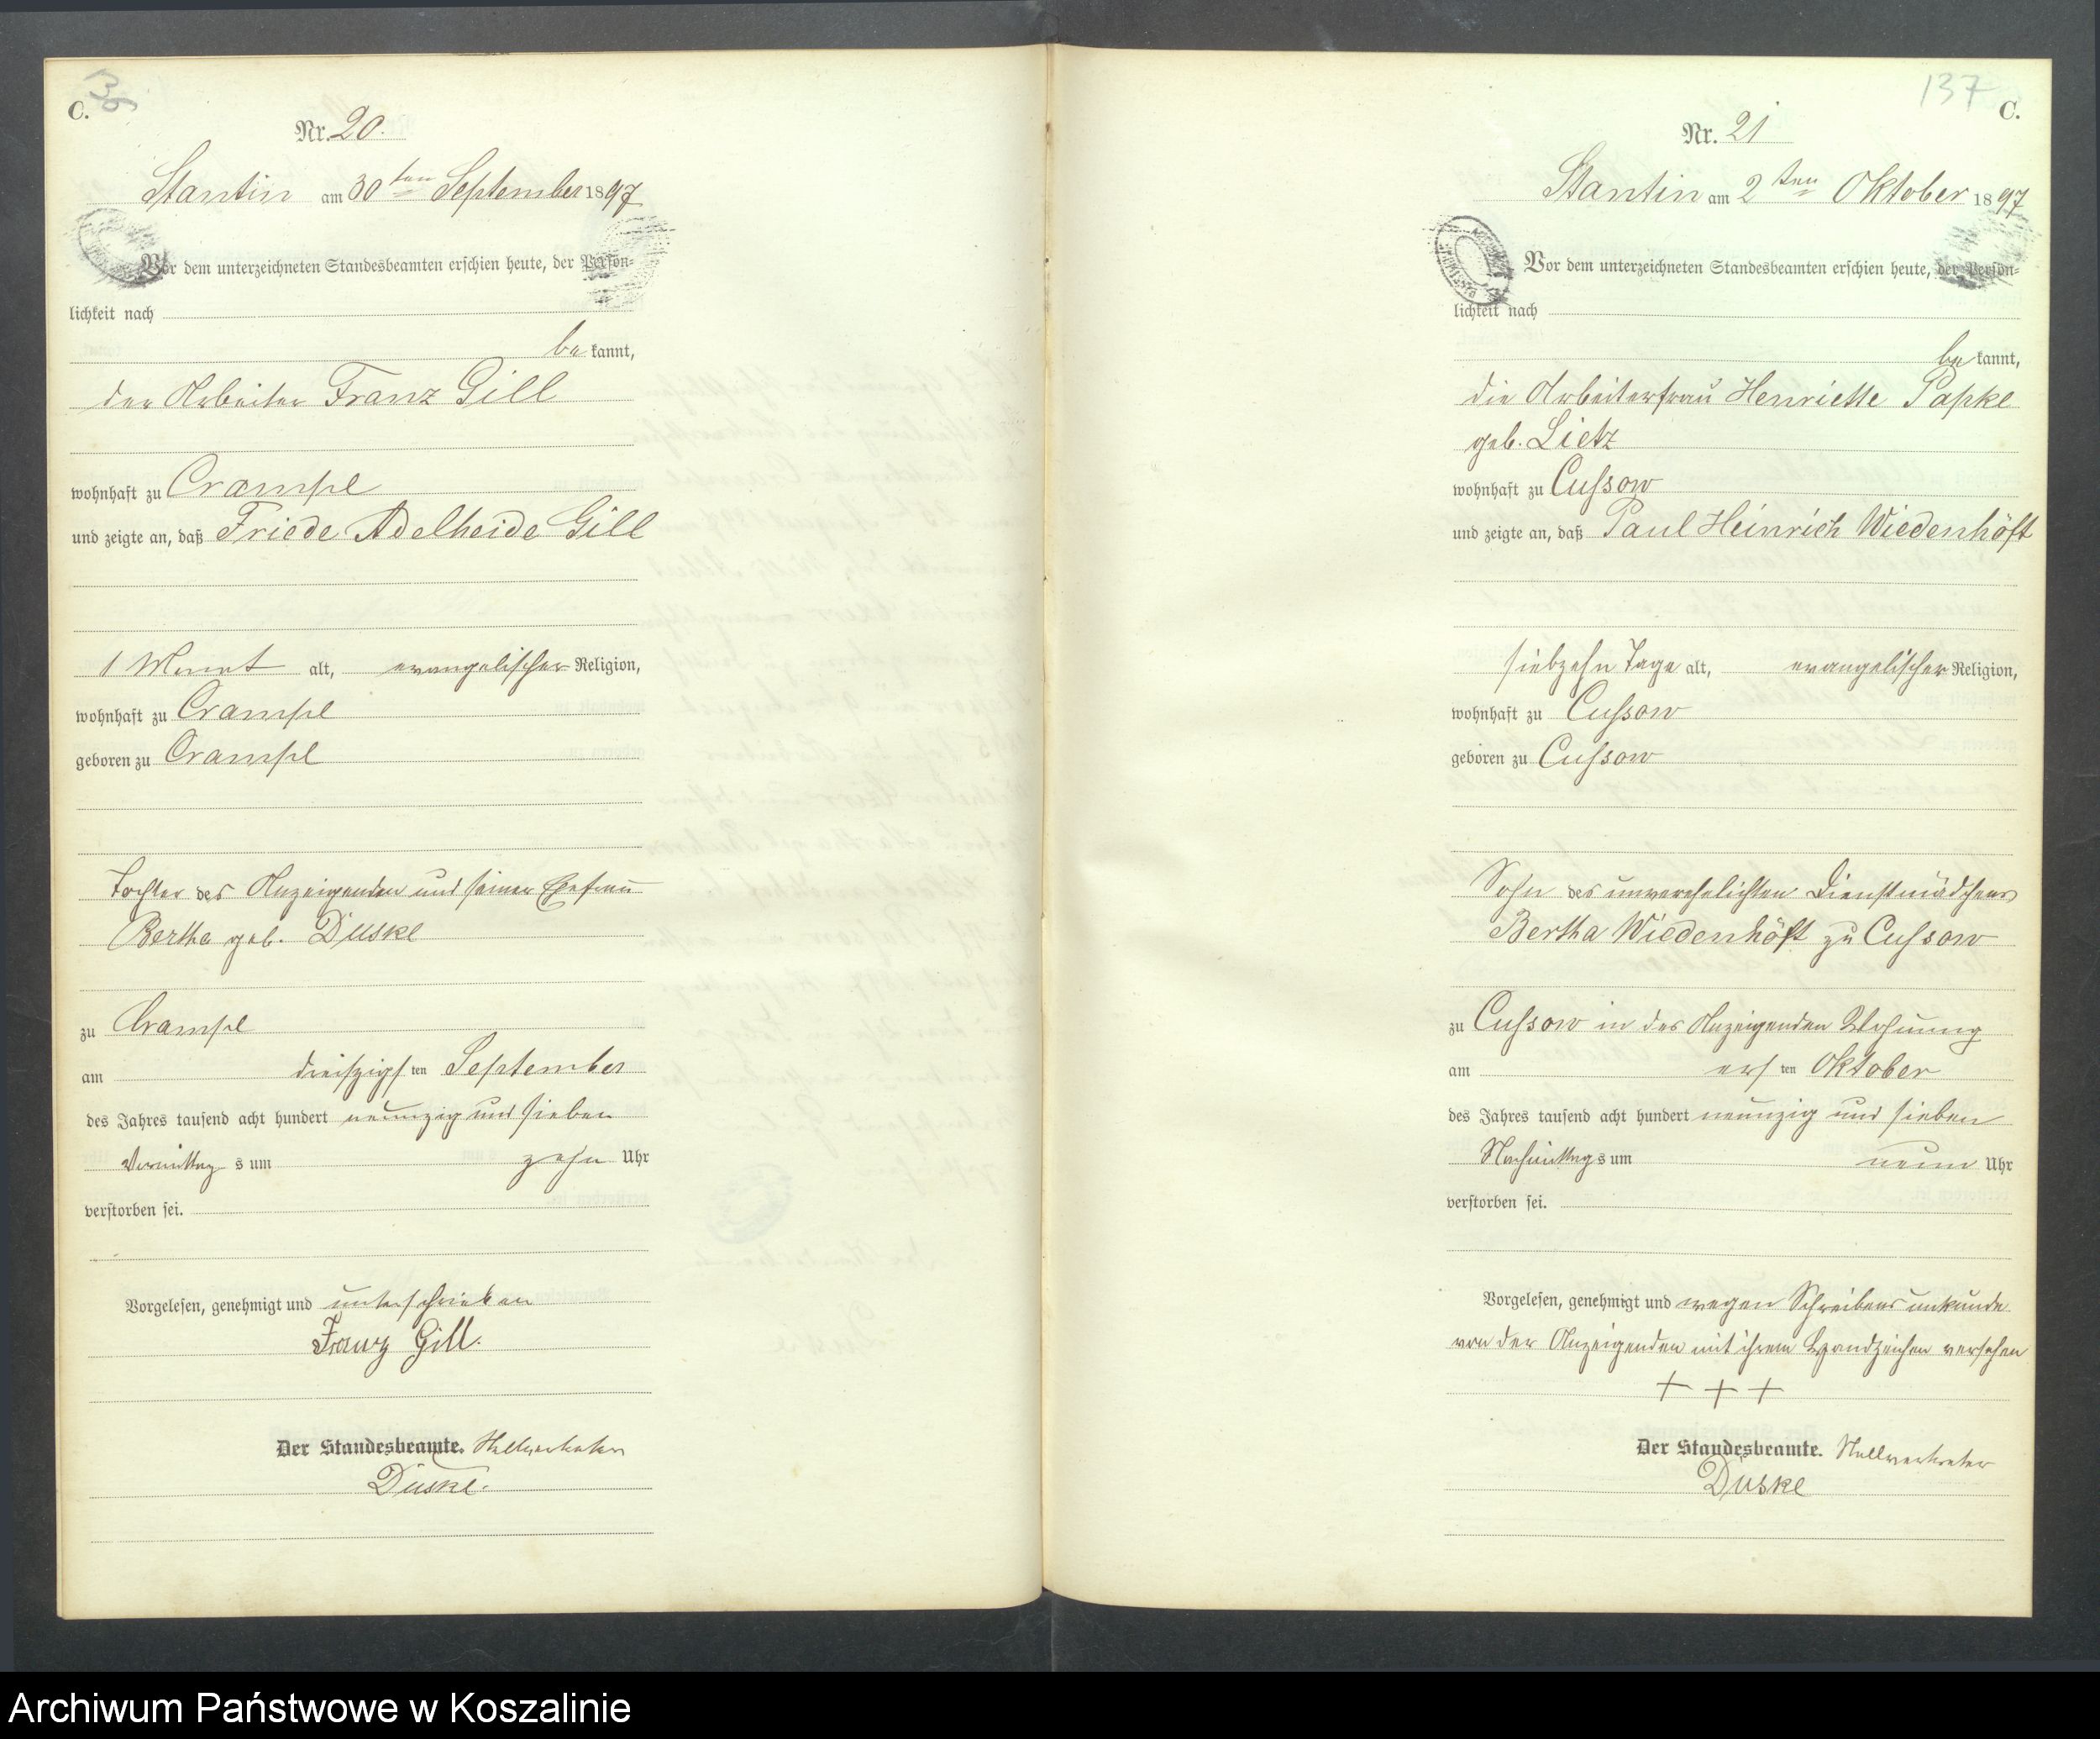 C.
36
Nr. 20.
Stantin am 30ten September 1897
Vor dem unterzeichneten Standesbeamten erschien heute, der Persön-
lichkeit nach
be kannt,
der Arbeiter Franz Gill
wohnhaft zu Crampe
und zeigte an, daß Friede Adelheide Gill
1 Monat alt, evangelischer Religion,
wohnhaft zu Crampe
geboren zu Crampe
Tochter des Anzeigenden und seiner Ehefrau
Bertha geb. Duske
zu Crampe
am dreiszigsten September
des Jahres tausend acht hundert neunzig und sieben
Vormittags um zehn Uhr
verstorben sei.
Vorgelesen, genehmigt und unterschrieben
Franz Gill.
Der Standesbeamte. Stellvertreter
Duske.
137
C.
Nr. 21
Stantin am 2ten Oktober 1897
Vor dem unterzeichneten Standesbeamten erschien heute, der Persön-
lichkeit nach
be kannt,
die Arbeiterfrau Henriette Papke
geb. Lietz
wohnhaft zu Cussow
und zeigte an, daß Paul Heinrich Wiedenhöft
siebzehn Tage alt, evangelischer Religion,
wohnhaft zu Cussow
geboren zu Cussow
Sohn des unverehelichten Dienstmädchens
Bertha Wiedenhöft zu Cussow
zu Cussow in der Anzeigenden Wohnung
am ersten Oktober
des Jahres tausend acht hundert neunzig und sieben
Nachmittags um neun Uhr
verstorben sei.
Vorgelesen, genehmigt und wegen Schreibens unkunde
von der Anzeigenden mit ihrem Handzeichen versehen
+ + +
Der Standesbeamte. Stellvertreter
Duske
Archiwum Państwowe w Koszalinie